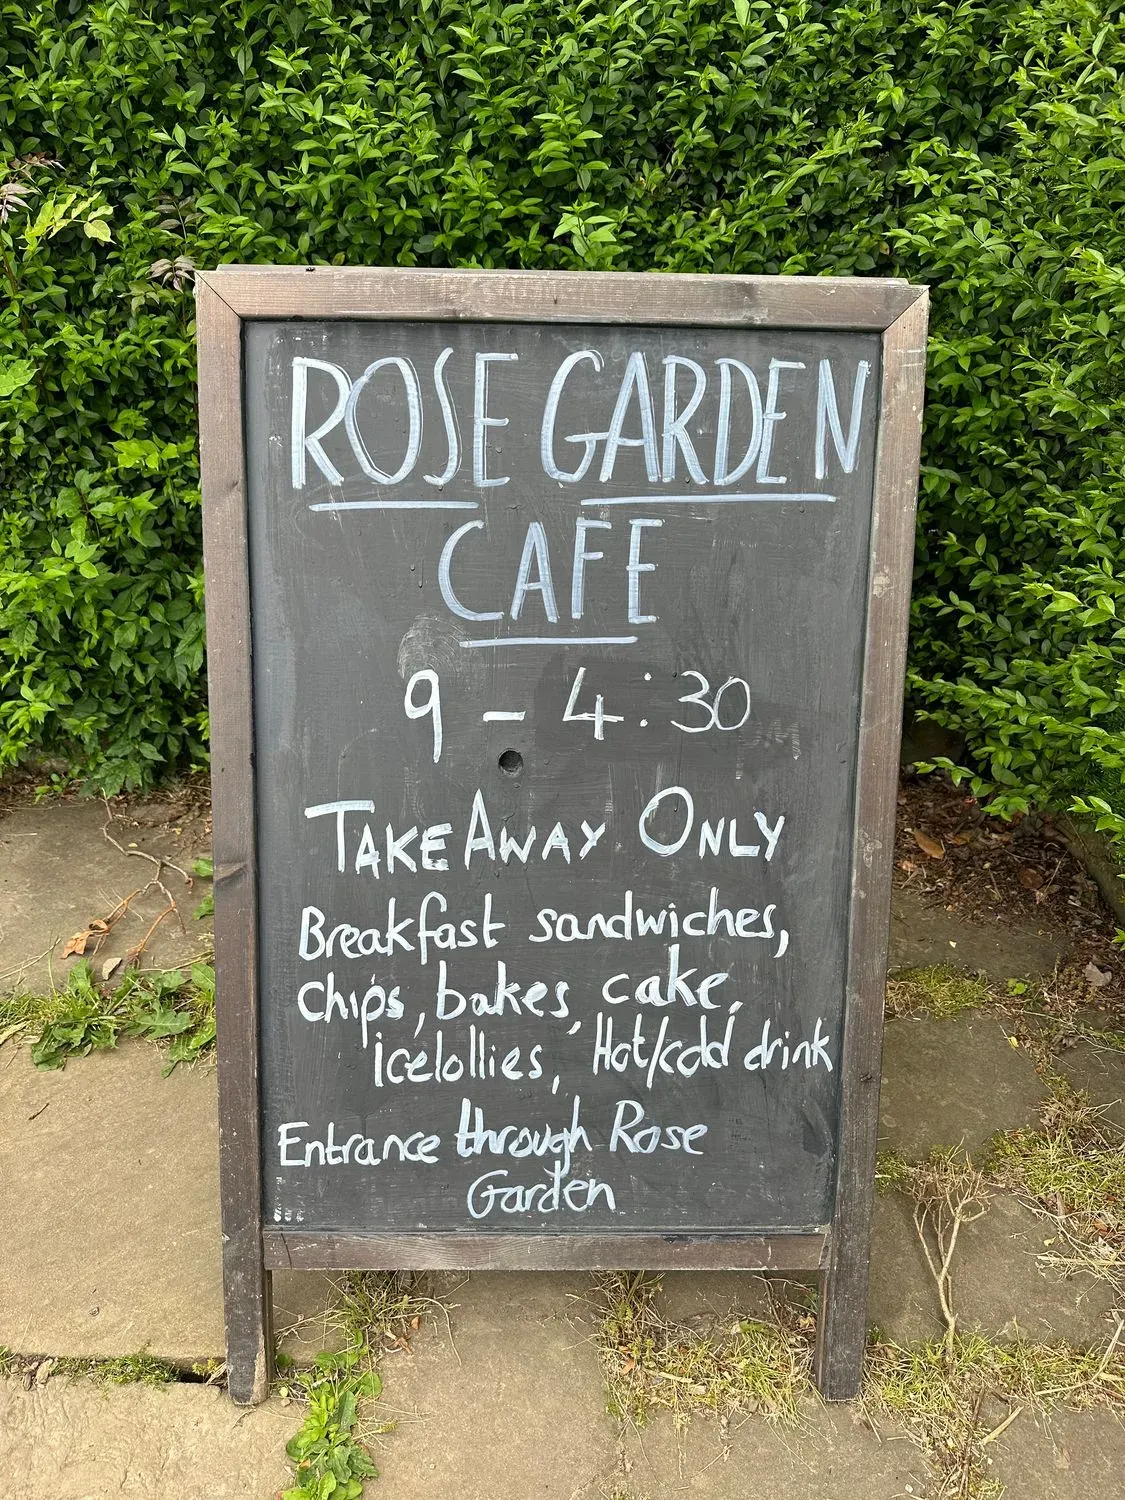 ROSE GARDEN
CAFE
9 - 4:30
TAKEAWAY ONLY
Breakfast sandwiches,
chips, bakes, cake,
icelollies, Hot/cold drink
Entrance through Rose
Garden